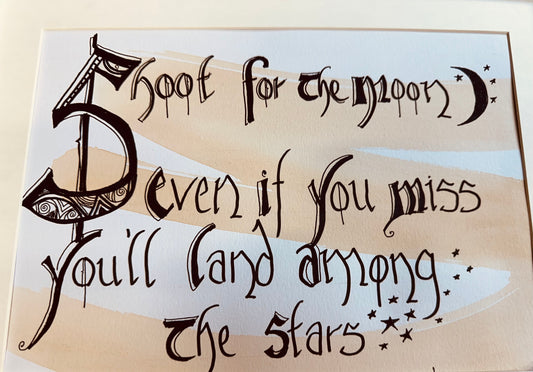 Shoot for the Moon
even if you miss
you'll land among
the stars